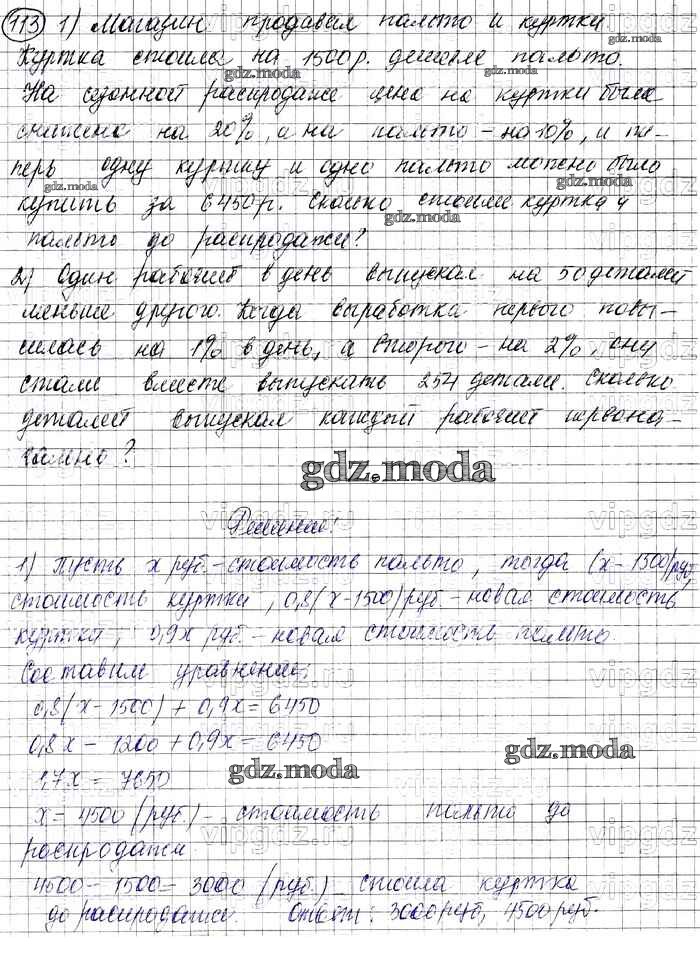 113 1) Магазин продавал пальто и куртки.
Куртка стоила на 1500р. дешевле пальто.
gdz.moda gdz.moda
На сезонной распродаже цена на куртки была
снижена на 20%, а на пальто – на 10%, и те-
перь одну куртку и одно пальто можно было
gdz.moda gdz.moda
купить за 6450р. Сколько стоили куртка и
gdz.moda
пальто до распродажи?
2) Один рабочий в день выпускал на 50 деталей
меньше другого. Когда выработка первого повы-
силась на 1% в день, а второго – на 2%, они
стали вместе выпускать 254 детали. Сколько
деталей выпускал каждый рабочий первона-
чально?
gdz.moda
Решение:
1) Пусть х руб. – стоимость пальто, тогда (х – 1500) руб.
стоимость куртки, 0,8(х – 1500) руб. – новая стоимость
куртки, 0,9х руб. – новая стоимость пальто
Составим уравнение:
0,8(х – 1500) + 0,9х = 6450
0,8х – 1200 + 0,9х = 6450
gdz.moda
1,7х = 7650
gdz.moda
х = 4500 (руб.) – стоимость пальто до
распродажи
4500 – 1500 = 3000 (руб.) – стоила куртка
до распродажи. Ответ: 3000 руб, 4500 руб.
gdz.moda